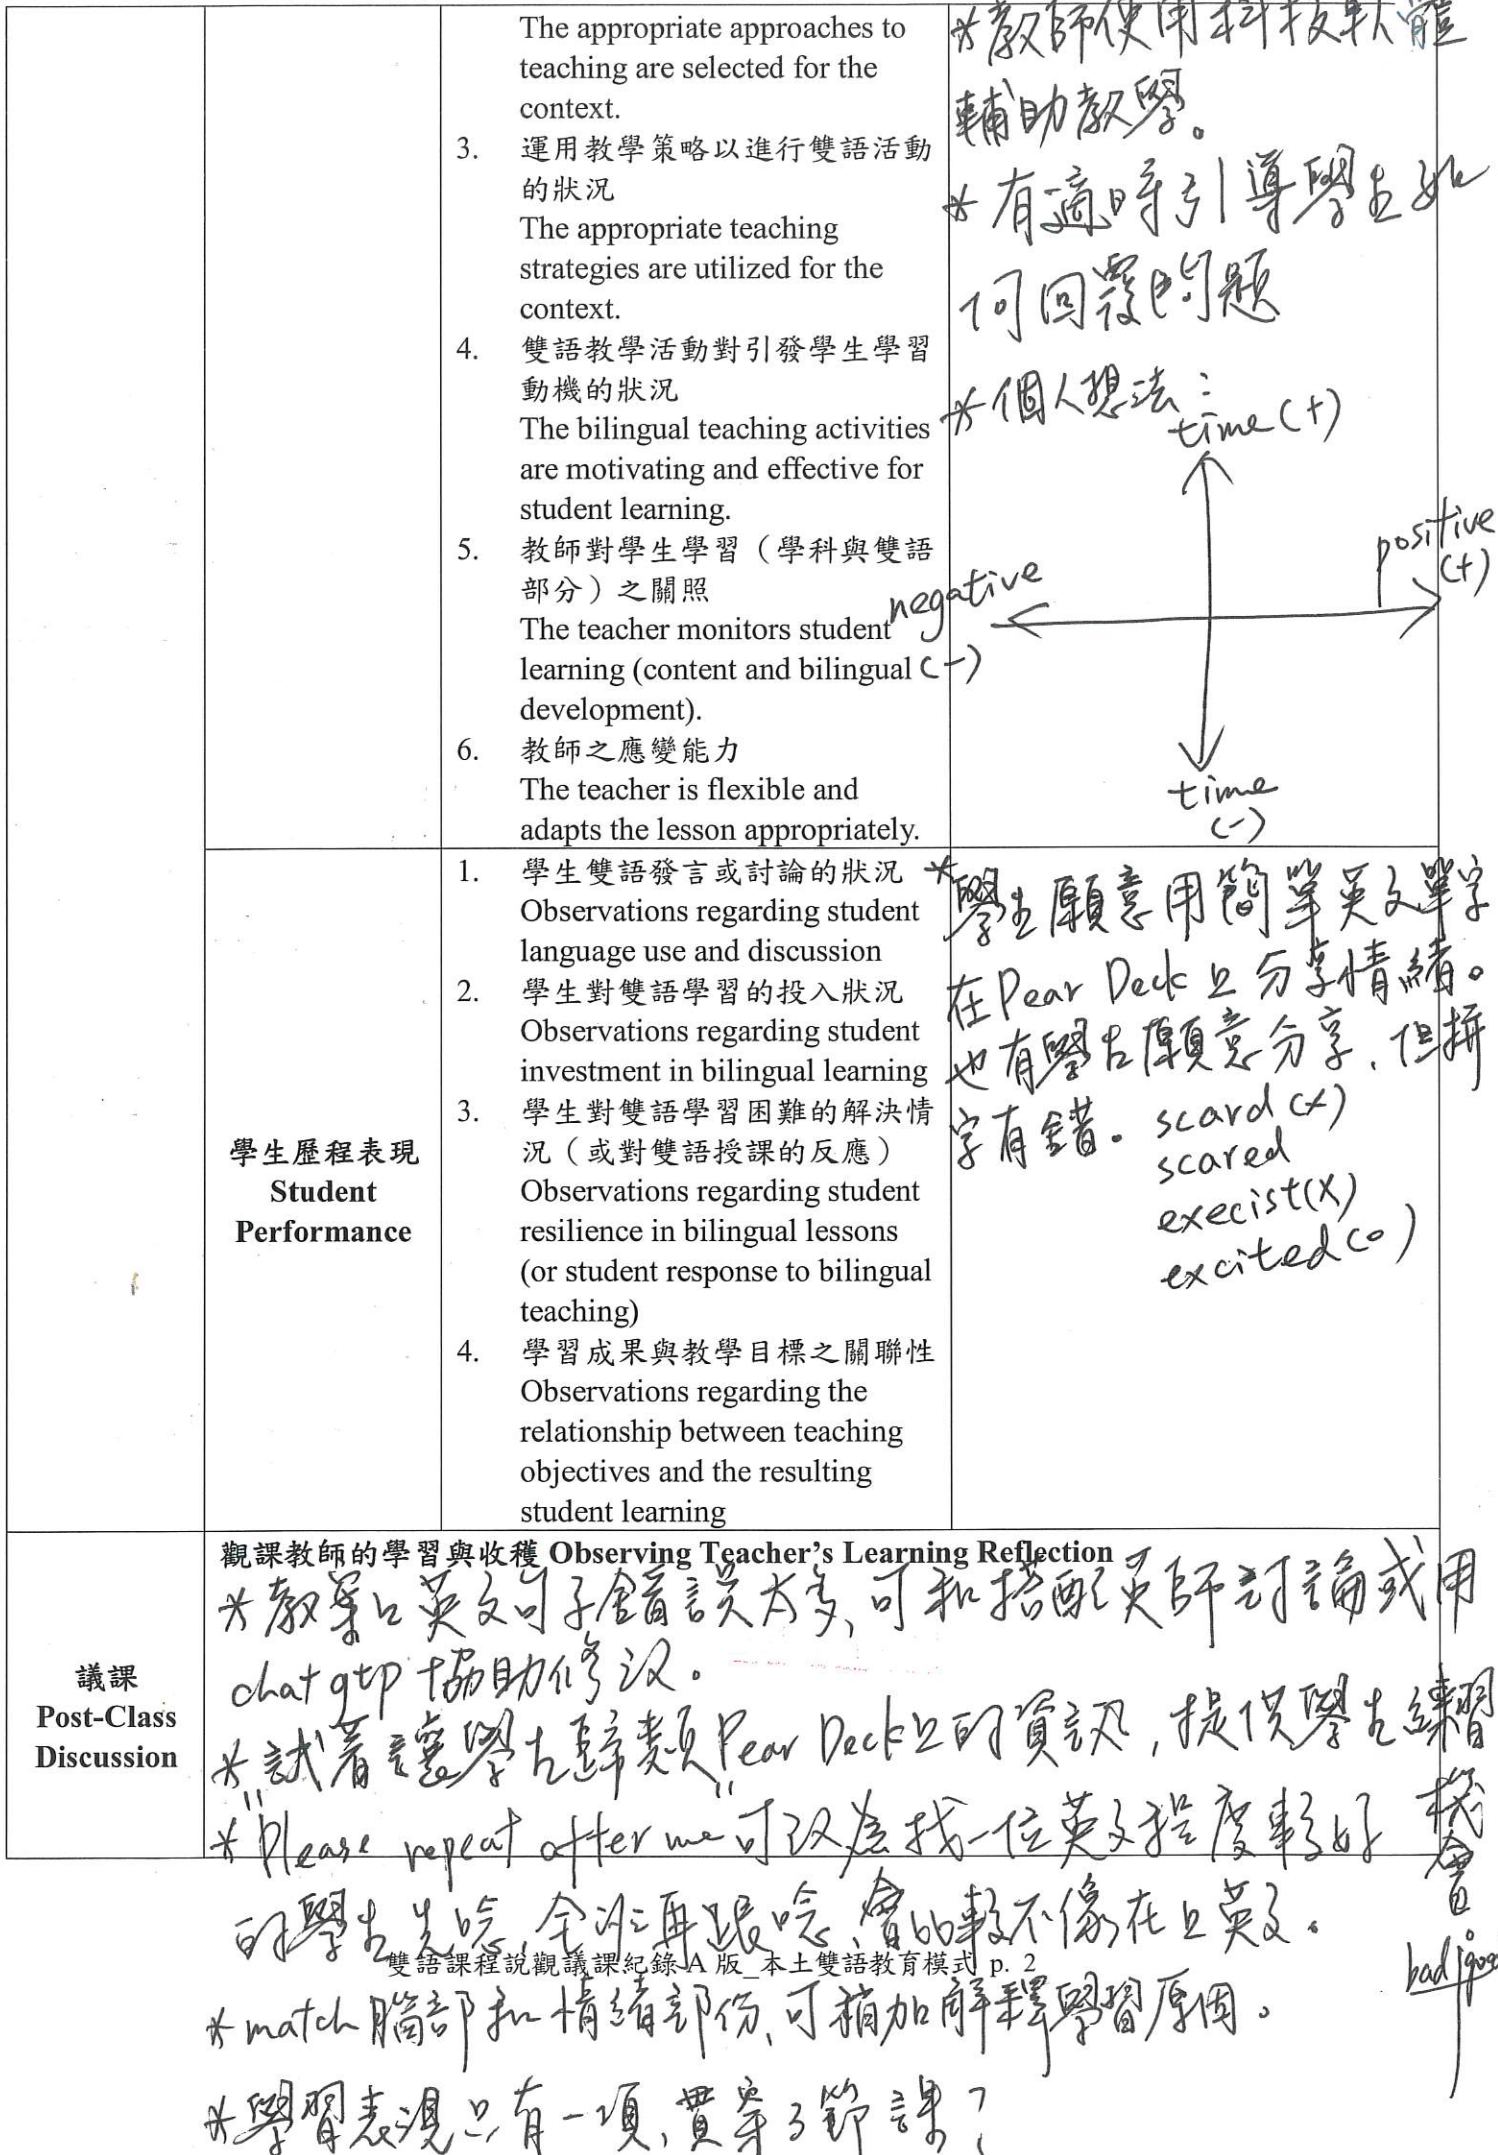 The appropriate approaches to
teaching are selected for the
context.
3. 運用教學策略以進行雙語活動
的狀況
The appropriate teaching
strategies are utilized for the
context.
4. 雙語教學活動對引發學生學習
動機的狀況
The bilingual teaching activities
are motivating and effective for
student learning.
5. 教師對學生學習（學科與雙語
部分）之關照
The teacher monitors student
learning (content and bilingual
development).
6. 教師之應變能力
The teacher is flexible and
adapts the lesson appropriately.
*教師使用科技軟體
輔助教學。
*有適時引導學生如
何回覆問題
*個人想法：
time (+)
positive
(+)
negative
(-)
time
(-)
學生歷程表現
Student
Performance
1. 學生雙語發言或討論的狀況
Observations regarding student
language use and discussion
2. 學生對雙語學習的投入狀況
Observations regarding student
investment in bilingual learning
3. 學生對雙語學習困難的解決情
況（或對雙語授課的反應）
Observations regarding student
resilience in bilingual lessons
(or student response to bilingual
teaching)
4. 學習成果與教學目標之關聯性
Observations regarding the
relationship between teaching
objectives and the resulting
student learning
*學生願意用簡單英文單字
在Pear Deck上分享情緒。
也有學生願意分享，但拼
字有錯。scard (x)
scared
execist(x)
excited(o)
議課
Post-Class
Discussion
觀課教師的學習與收穫 Observing Teacher's Learning Reflection
*教案上英文句子錯誤太多，可和搭配英師討論或用
chat gtp 協助修改。
*試著讓學生歸類Pear Deck上的資訊，提供學生練習
機會
*"Please repeat after me"可改為找一位英文程度較好
的學生先唸，全班再跟唸，會比較不像在上英文。
雙語課程說觀議課紀錄 A 版_本土雙語教育模式 p. 2
bad
*match 腦部和情緒部份，可稍加解釋學習原因。
*學習表現只有一項，貫穿3節課？